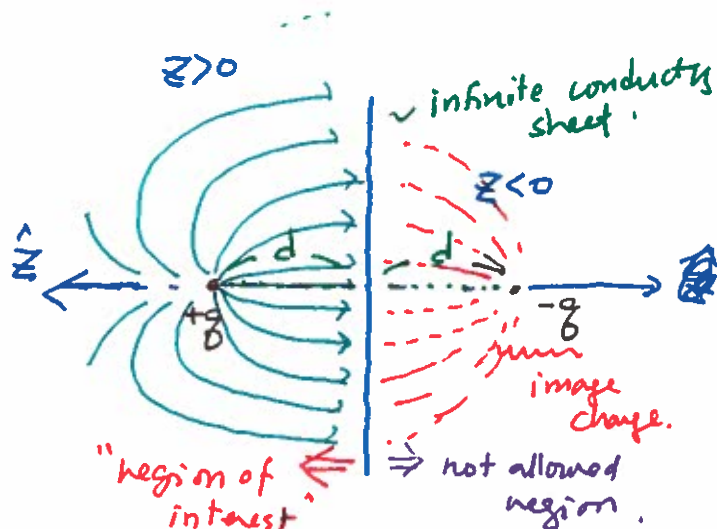 z>0
infinite conducting
sheet.
z<0
ẑ
d
d
+q
-q
image
charge.
"region of
interest"
not allowed
region.